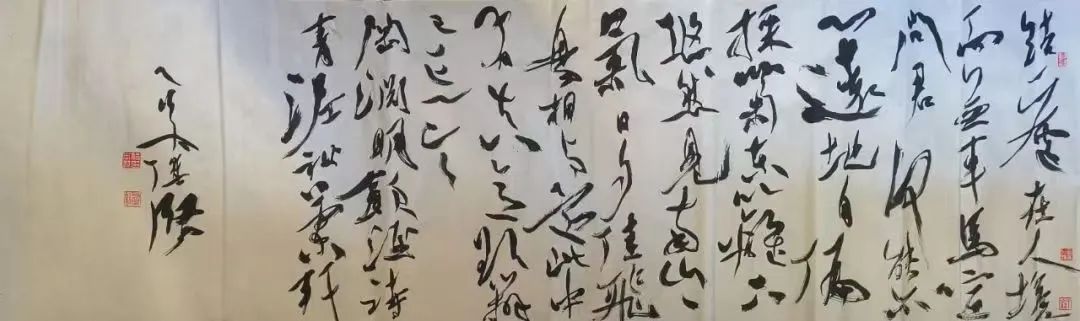 結廬在人境
而無車馬喧
問君何能尔
心遠地自偏
採菊東籬下
悠然見南山山
氣日夕佳飛
鳥相與還此中
有真意欲辯
已忘言
陶淵明飲酒詩
青涯